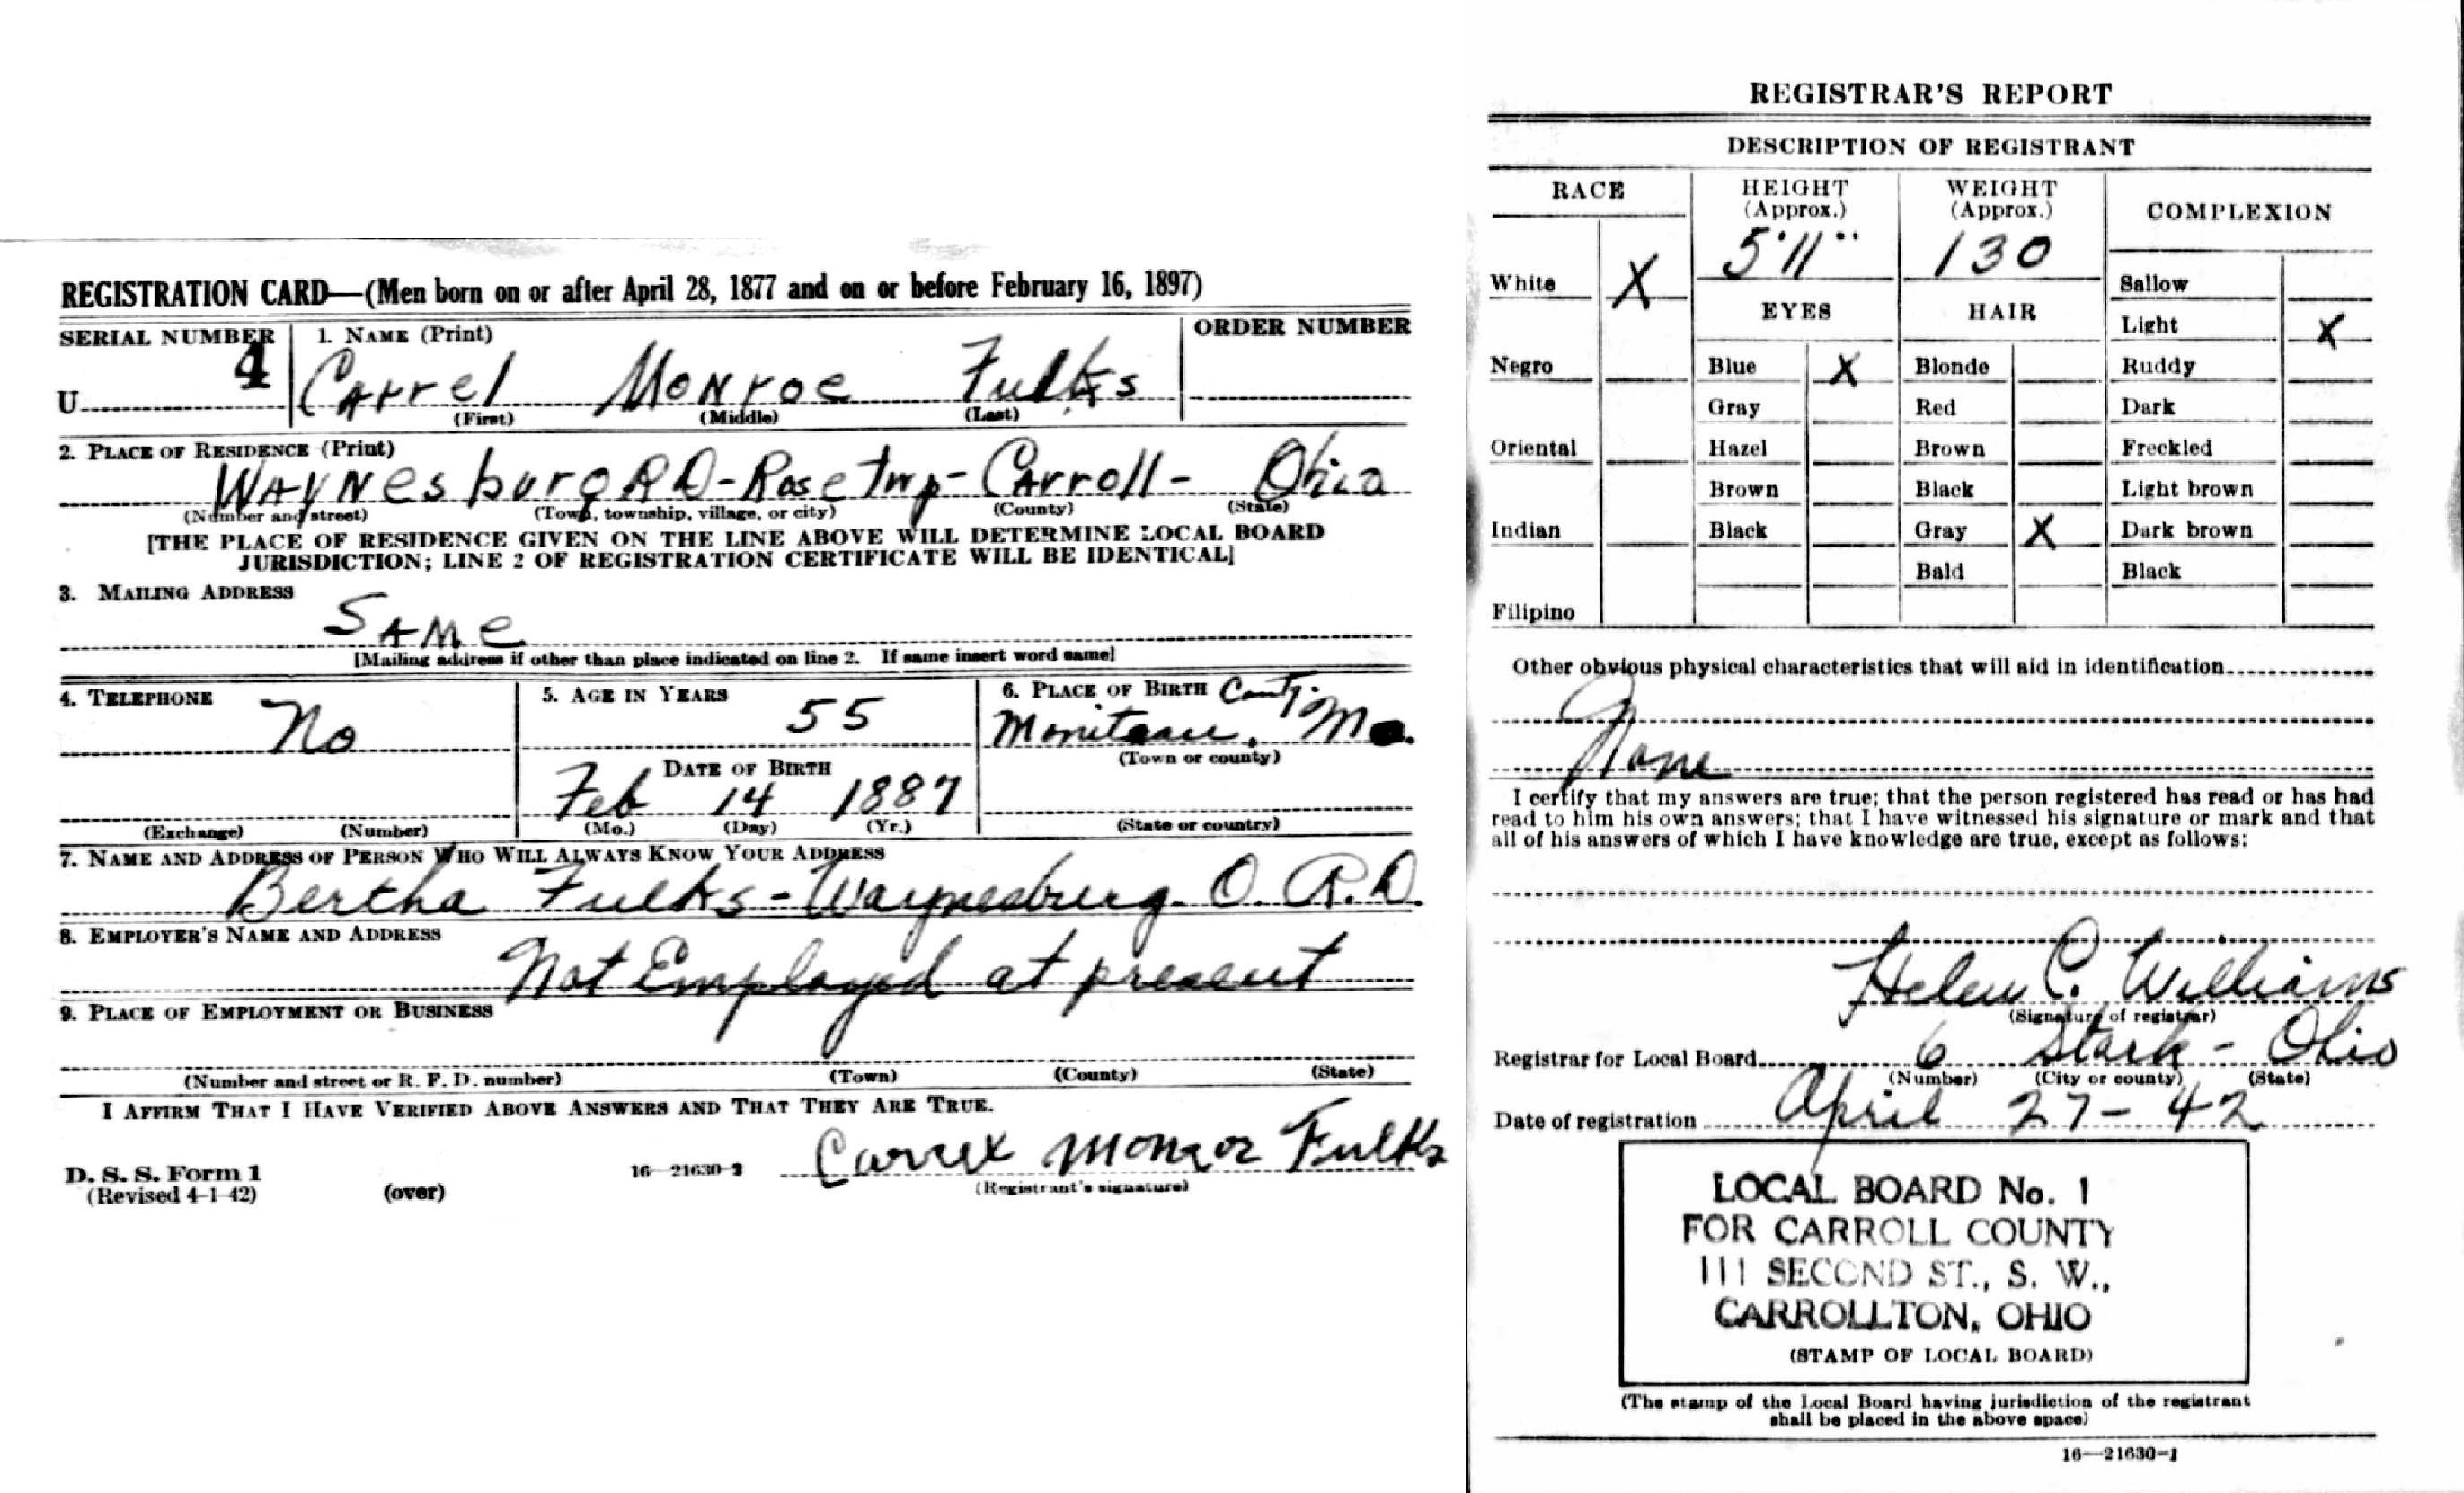 REGISTRATION CARD—(Men born on or after April 28, 1877 and on or before February 16, 1897)
SERIAL NUMBER 1. NAME (Print) ORDER NUMBER
U 4 Carrel Monroe Fulks
(First) (Middle) (Last)
2. PLACE OF RESIDENCE (Print)
Waynesburg RD - Rose twp - Carroll - Ohio
(Number and street) (Town, township, village, or city) (County) (State)
[THE PLACE OF RESIDENCE GIVEN ON THE LINE ABOVE WILL DETERMINE LOCAL BOARD
JURISDICTION; LINE 2 OF REGISTRATION CERTIFICATE WILL BE IDENTICAL]
3. MAILING ADDRESS
SAME
[Mailing address if other than place indicated on line 2. If same insert word same]
4. TELEPHONE 5. AGE IN YEARS 6. PLACE OF BIRTH County.
No 55 Moniteau, Mo.
(Town or county)
DATE OF BIRTH
Feb 14 1887
(Exchange) (Number) (Mo.) (Day) (Yr.) (State or country)
7. NAME AND ADDRESS OF PERSON WHO WILL ALWAYS KNOW YOUR ADDRESS
Bertha Fulks - Waynesburg. O. R.D.
8. EMPLOYER'S NAME AND ADDRESS
Not Employed at present
9. PLACE OF EMPLOYMENT OR BUSINESS
(Number and street or R. F. D. number) (Town) (County) (State)
I AFFIRM THAT I HAVE VERIFIED ABOVE ANSWERS AND THAT THEY ARE TRUE.
D. S. S. Form 1 16—21630-2 Carrel Monroe Fulks
(Revised 4-1-42) (over) (Registrant's signature)
REGISTRAR'S REPORT
DESCRIPTION OF REGISTRANT
RACE HEIGHT (Approx.) WEIGHT (Approx.) COMPLEXION
5'11" 130
White X Sallow
EYES HAIR Light X
Negro Blue X Blonde Ruddy
Gray Red Dark
Oriental Hazel Brown Freckled
Brown Black Light brown
Indian Black Gray X Dark brown
Bald Black
Filipino
Other obvious physical characteristics that will aid in identification
None
I certify that my answers are true; that the person registered has read or has had
read to him his own answers; that I have witnessed his signature or mark and that
all of his answers of which I have knowledge are true, except as follows:
Helen C. Williams
(Signature of registrar)
Registrar for Local Board 6 Stark - Ohio
(Number) (City or county) (State)
Date of registration April 27 - 42
LOCAL BOARD No. 1
FOR CARROLL COUNTY
111 SECOND ST., S. W.,
CARROLLTON, OHIO
(STAMP OF LOCAL BOARD)
(The stamp of the Local Board having jurisdiction of the registrant
shall be placed in the above space)
16—21630-1